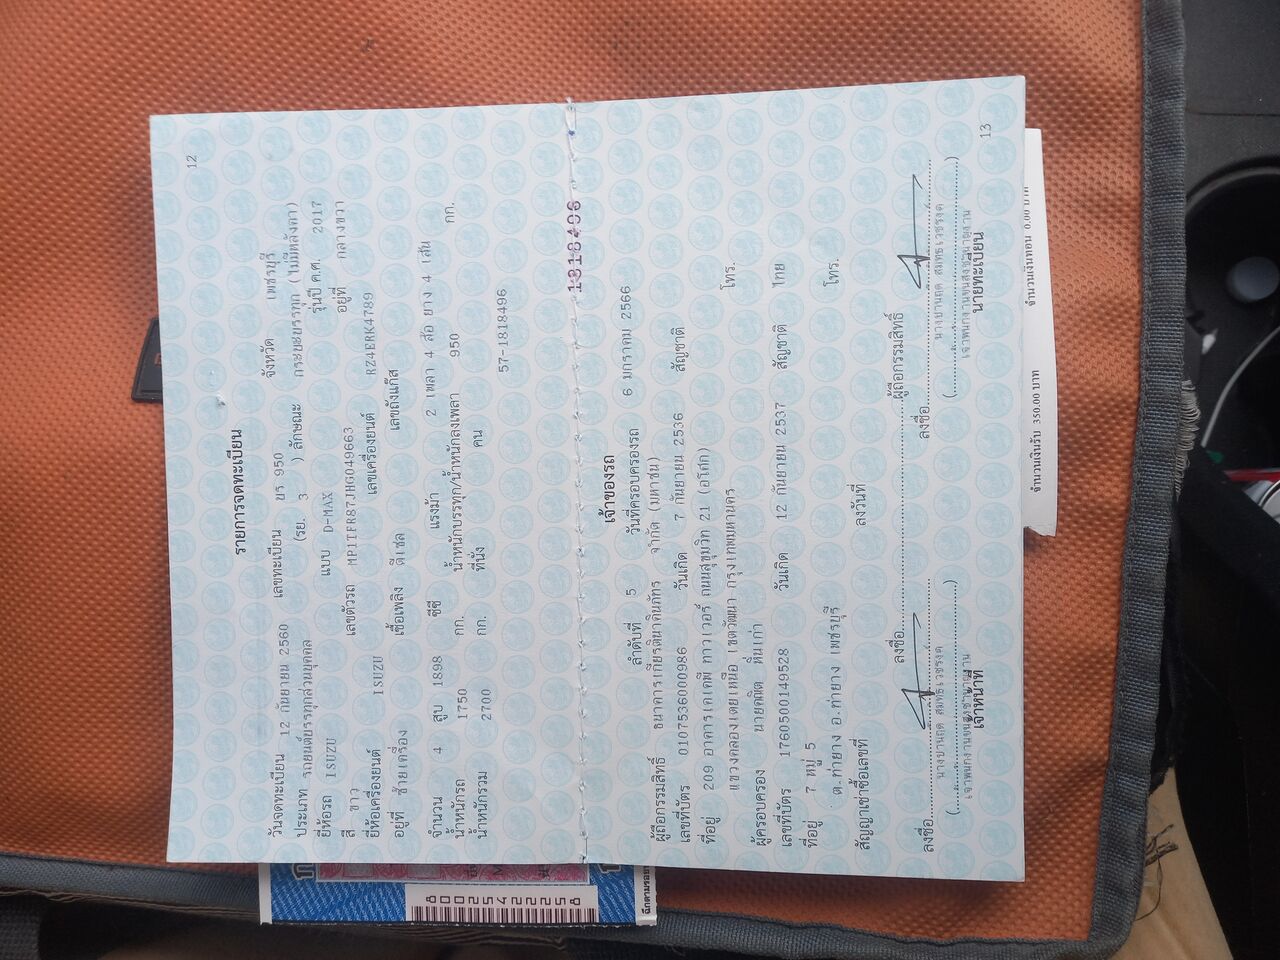 12
รายการจดทะเบียน
วันจดทะเบียน 12 กันยายน 2560 เลขทะเบียน ยร 950 จังหวัด เพชรบุรี
ประเภท รถยนต์บรรทุกส่วนบุคคล (รย. 3 ) ลักษณะ กระบะบรรทุก (ไม่มีหลังคา)
ยี่ห้อรถ ISUZU แบบ D-MAX รุ่นปี ค.ศ. 2017
สี ขาว เลขตัวรถ MP1TFR87JHG049663 อยู่ที่ กลางขวา
ยี่ห้อเครื่องยนต์ ISUZU เลขเครื่องยนต์ RZ4ERK4789
อยู่ที่ ซ้ายเครื่อง เชื้อเพลิง ดีเซล เลขถังแก๊ส
จำนวน 4 สูบ 1898 ซีซี แรงม้า 2 เพลา 4 ล้อ ยาง 4 เส้น
น้ำหนักรถ 1750 กก. น้ำหนักบรรทุก/น้ำหนักลงเพลา 950 กก.
น้ำหนักรวม 2700 กก. ที่นั่ง คน
57-1818496
1818496
เจ้าของรถ
ลำดับที่ 5 วันที่ครอบครองรถ 6 มกราคม 2566
ผู้ถือกรรมสิทธิ์ ธนาคารเกียรตินาคินภัทร จำกัด (มหาชน)
เลขที่บัตร 0107536000986 วันเกิด 7 กันยายน 2536 สัญชาติ
ที่อยู่ 209 อาคารเคเคพี ทาวเวอร์ ถนนสุขุมวิท 21 (อโศก)
แขวงคลองเตยเหนือ เขตวัฒนา กรุงเทพมหานคร โทร.
ผู้ครอบครอง นายคณิต หิ่นเก่า
เลขที่บัตร 1760500149528 วันเกิด 12 กันยายน 2537 สัญชาติ ไทย
ที่อยู่ 7 หมู่ 5
ต.ท่ายาง อ.ท่ายาง เพชรบุรี โทร.
สัญญาเช่าซื้อเลขที่ ลงวันที่
ลงชื่อ ผู้ถือกรรมสิทธิ์
ลงชื่อ ลงชื่อ
เจ้าหน้าที่ นายทะเบียน
13
จำนวนเงินรับ 350.00 บาท จำนวนเงินทอน 0.00 บาท
8002542222258